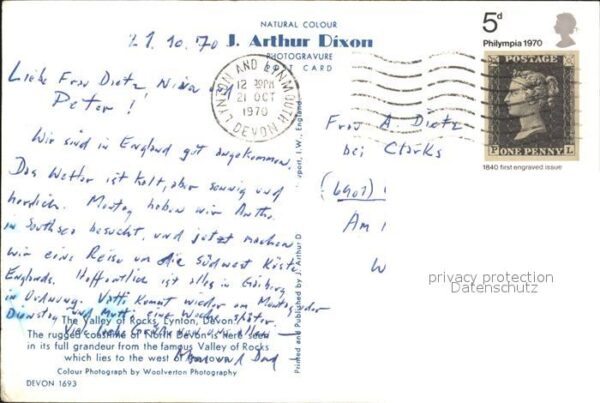 NATURAL COLOUR
J. Arthur Dixon
PHOTOGRAVURE
POST CARD
21.10.70
Liebe Frau Dietz, Nina und
Peter!
Wir sind in England gut angekommen.
Das Wetter ist kalt, aber sonnig und
herrlich. Montag haben wir Anth.
in Southsea besucht, und jetzt machen
wir eine Reise um die südwest Küste
Englands. Hoffentlich ist alles in
in Ordnung. Vati kommt wieder am Montag oder
Dienstag und Mutti eine Woche später.
Viele liebe von uns allen –
und
The Valley of Rocks, Lynton, Devon.
The rugged coastline of North Devon is here seen
in its full grandeur from the famous Valley of Rocks
which lies to the west of
Colour Photograph by Woolverton Photography
DEVON 1693
Printed and Published by J. Arthur D
port, I.W., England
LYNTON AND LYNMOUTH
12 30PM
21 OCT
1970
DEVON
5d
Philympia 1970
POSTAGE
P ONE PENNY L
1840 first engraved issue
Frau A. Dietz
bei Clarks
(6901)
Am
W
privacy protection
Datenschutz